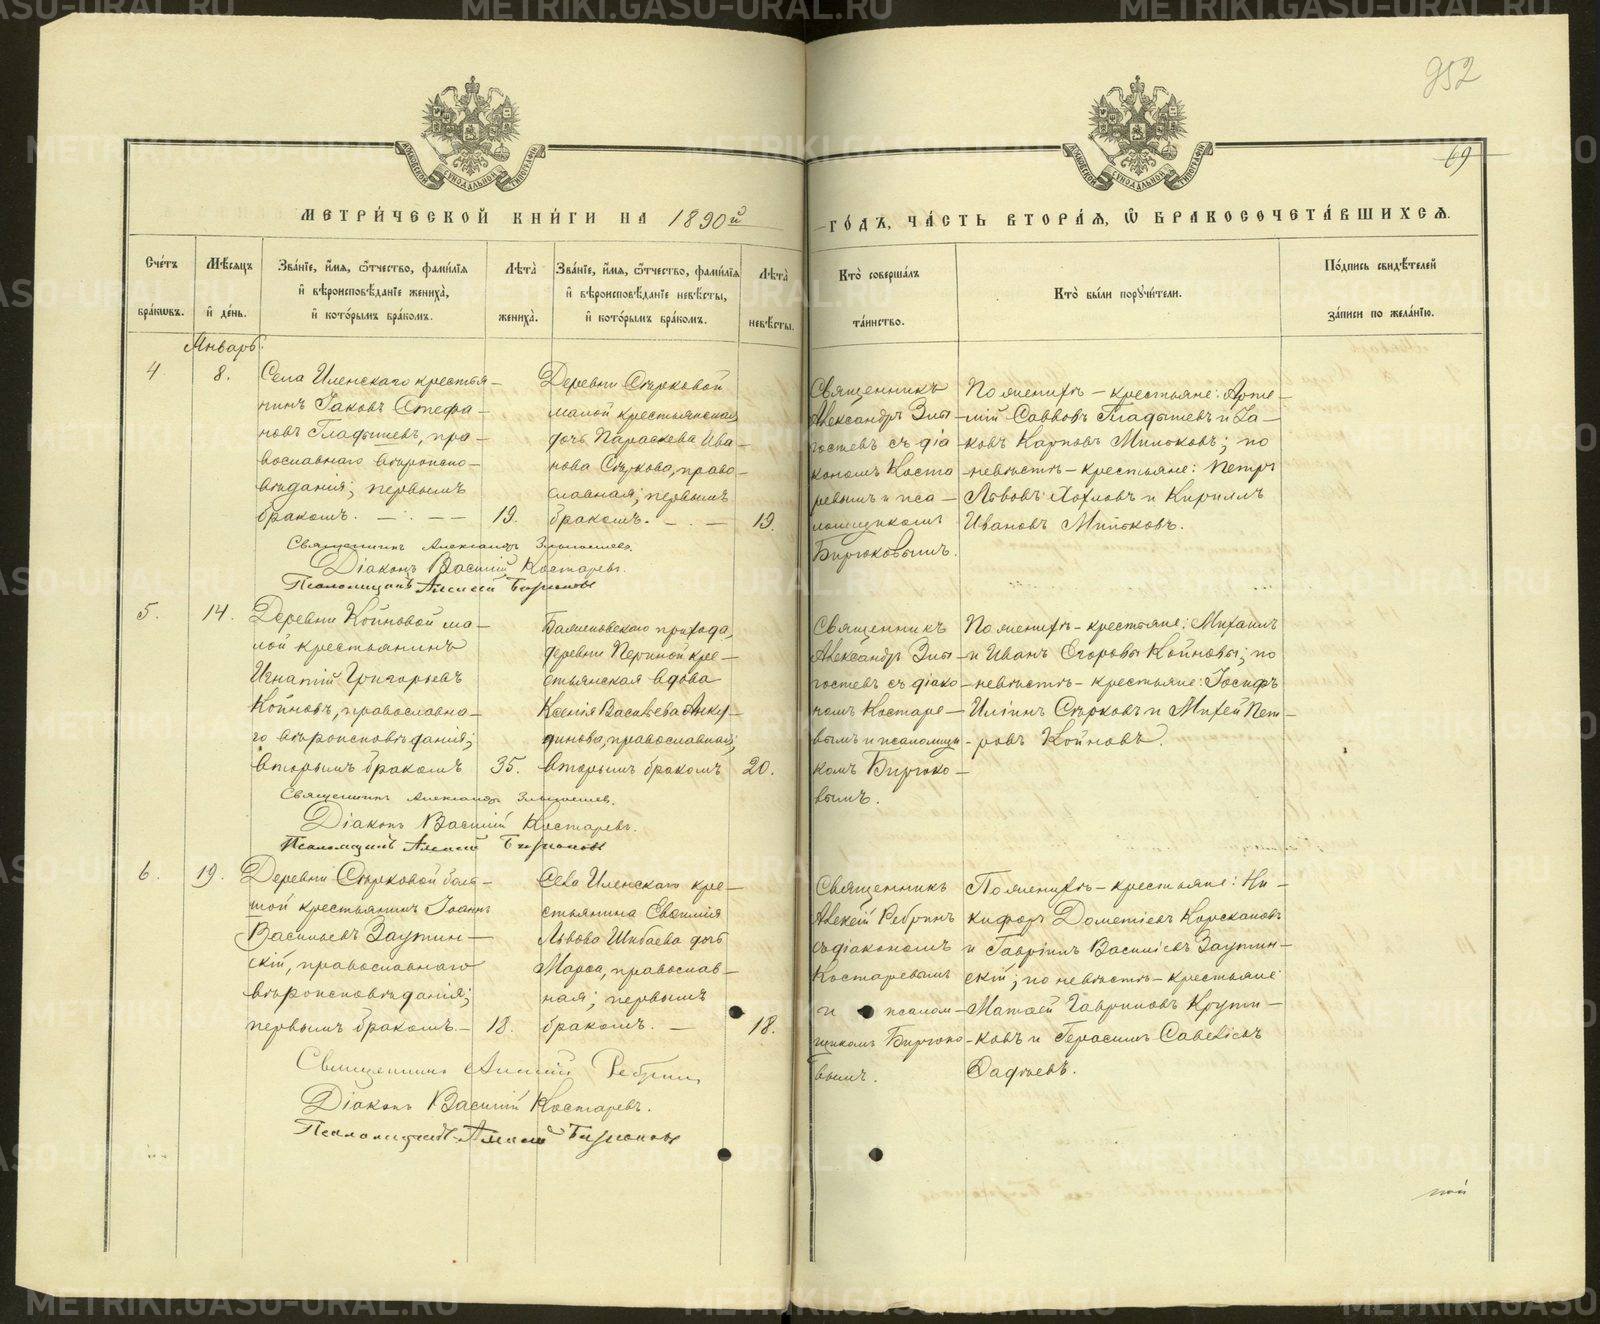 952
69
МЕТРИ́ЧЕСКОЙ КНИ́ГИ НА 1890й
ГО́ДЪ, ЧА́СТЬ ВТОРА́Я, Ѡ БРАКОСОЧЕТА́ВШИХСЯ.
Сче́тъ бра́кѡвъ.
Мѣ́сяцъ и де́нь.
Зва́нїе, и́мя, ѻ́тчество, фами́лїя
и вѣроисповѣ́данїе жениха̀,
и кото́рымъ бра́комъ.
Лѣта̀ жениха̀.
Зва́нїе, и́мя, ѻ́тчество, фами́лїя
и вѣроисповѣ́данїе невѣ́сты,
и кото́рымъ бра́комъ.
Лѣта̀ невѣ́сты.
Кто̀ соверша́лъ
та́инство.
Кто̀ бы́ли поручи́тели.
По́дпись свидѣ́телей
за́писи по жела́нїю.
Январь.
4
8.
Села Иленскаго крестья-
нинъ Іаковъ Стефа-
новъ Гладышевъ, пра-
вославнаго вѣроиспо-
вѣданія; первымъ
бракомъ.
19.
Деревни Сѣрковой
малой крестьянская
дочь Параскева Ива-
нова Сѣркова, право-
славная; первымъ
бракомъ.
19.
Священникъ
Александръ Злы-
гостевъ съ діа
кономъ Коста
ревымъ и пса-
ломщикомъ
Бирюковымъ.
По женихѣ - крестьяне: Арте-
мій Савво́въ Гладышевъ и Іа-
ковъ Карповъ Милюковъ; по
невѣстѣ - крестьяне: Петръ
Львовъ Хохловъ и Кириллъ
Ивановъ Милюковъ.
Священникъ Александръ Злыгостевъ.
Діаконъ Василій Костаревъ.
Псаломщикъ Алексій Бирюковъ
5.
14.
Деревни Койновой ма-
лой крестьянинъ
Игнатій Григорьевъ
Койновъ, православна-
го вѣроисповѣданія;
вторымъ бракомъ
35.
прихода,
деревни Першиной кре-
стьянская вдова
Ксенія Васильева Анку-
динова, православная;
вторымъ бракомъ
20.
Священникъ
Александръ Злы-
гостевъ съ діако-
номъ Костаре-
вымъ и псаломщи-
комъ Бирюко-
вымъ.
По женихѣ - крестьяне: Михаилъ
и Иванъ Егоровы Койновы; по
невѣстѣ - крестьяне: Іосифъ
Иліинъ Сѣрковъ и Михей Пет-
ровъ Койновъ.
Священникъ Александръ Злыгостевъ.
Діаконъ Василій Костаревъ.
Псаломщикъ Алексій Бирюковъ
6.
19.
Деревни Сѣрковой боль-
шой крестьянинъ Іоаннъ
Васильевъ Заутин-
скій, православнаго
вѣроисповѣданія;
первымъ бракомъ.-
18.
Села Иленскаго кре-
стьянина Евѳимія
Львова Шибаева дочь
Марѳа, православ-
ная; первымъ
бракомъ. -
18.
Священникъ
Алексій Ребринъ
съ діакономъ
Костаревымъ
и псалом-
щикомъ Бирюко
вымъ.
По женихѣ - крестьяне: Ни-
кифоръ Дометіевъ Корекановъ
и Гавріилъ Василіевъ Заутин-
скій; по невѣстѣ - крестьяне
Матѳій Гавриловъ Крути-
ковъ и Герасимъ Савеліевъ
Фадѣевъ.
Священникъ Алексій Ребринъ
Діаконъ Василій Костаревъ.
Псаломщикъ Алексій Бирюковъ